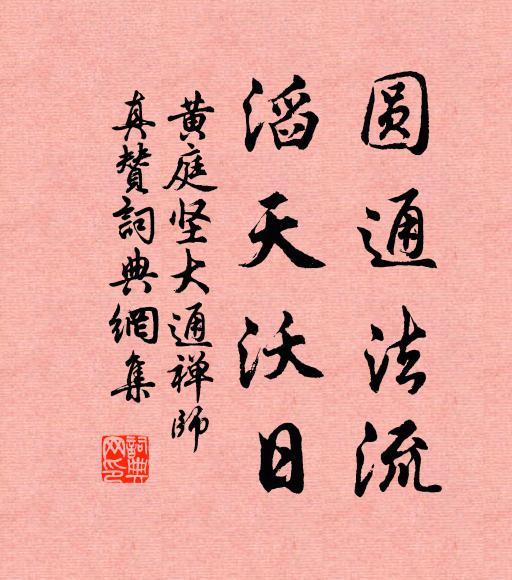 圆通法流
滔天沃日
黄庭坚大通禅师
真赞詞典網集
詞典
网印